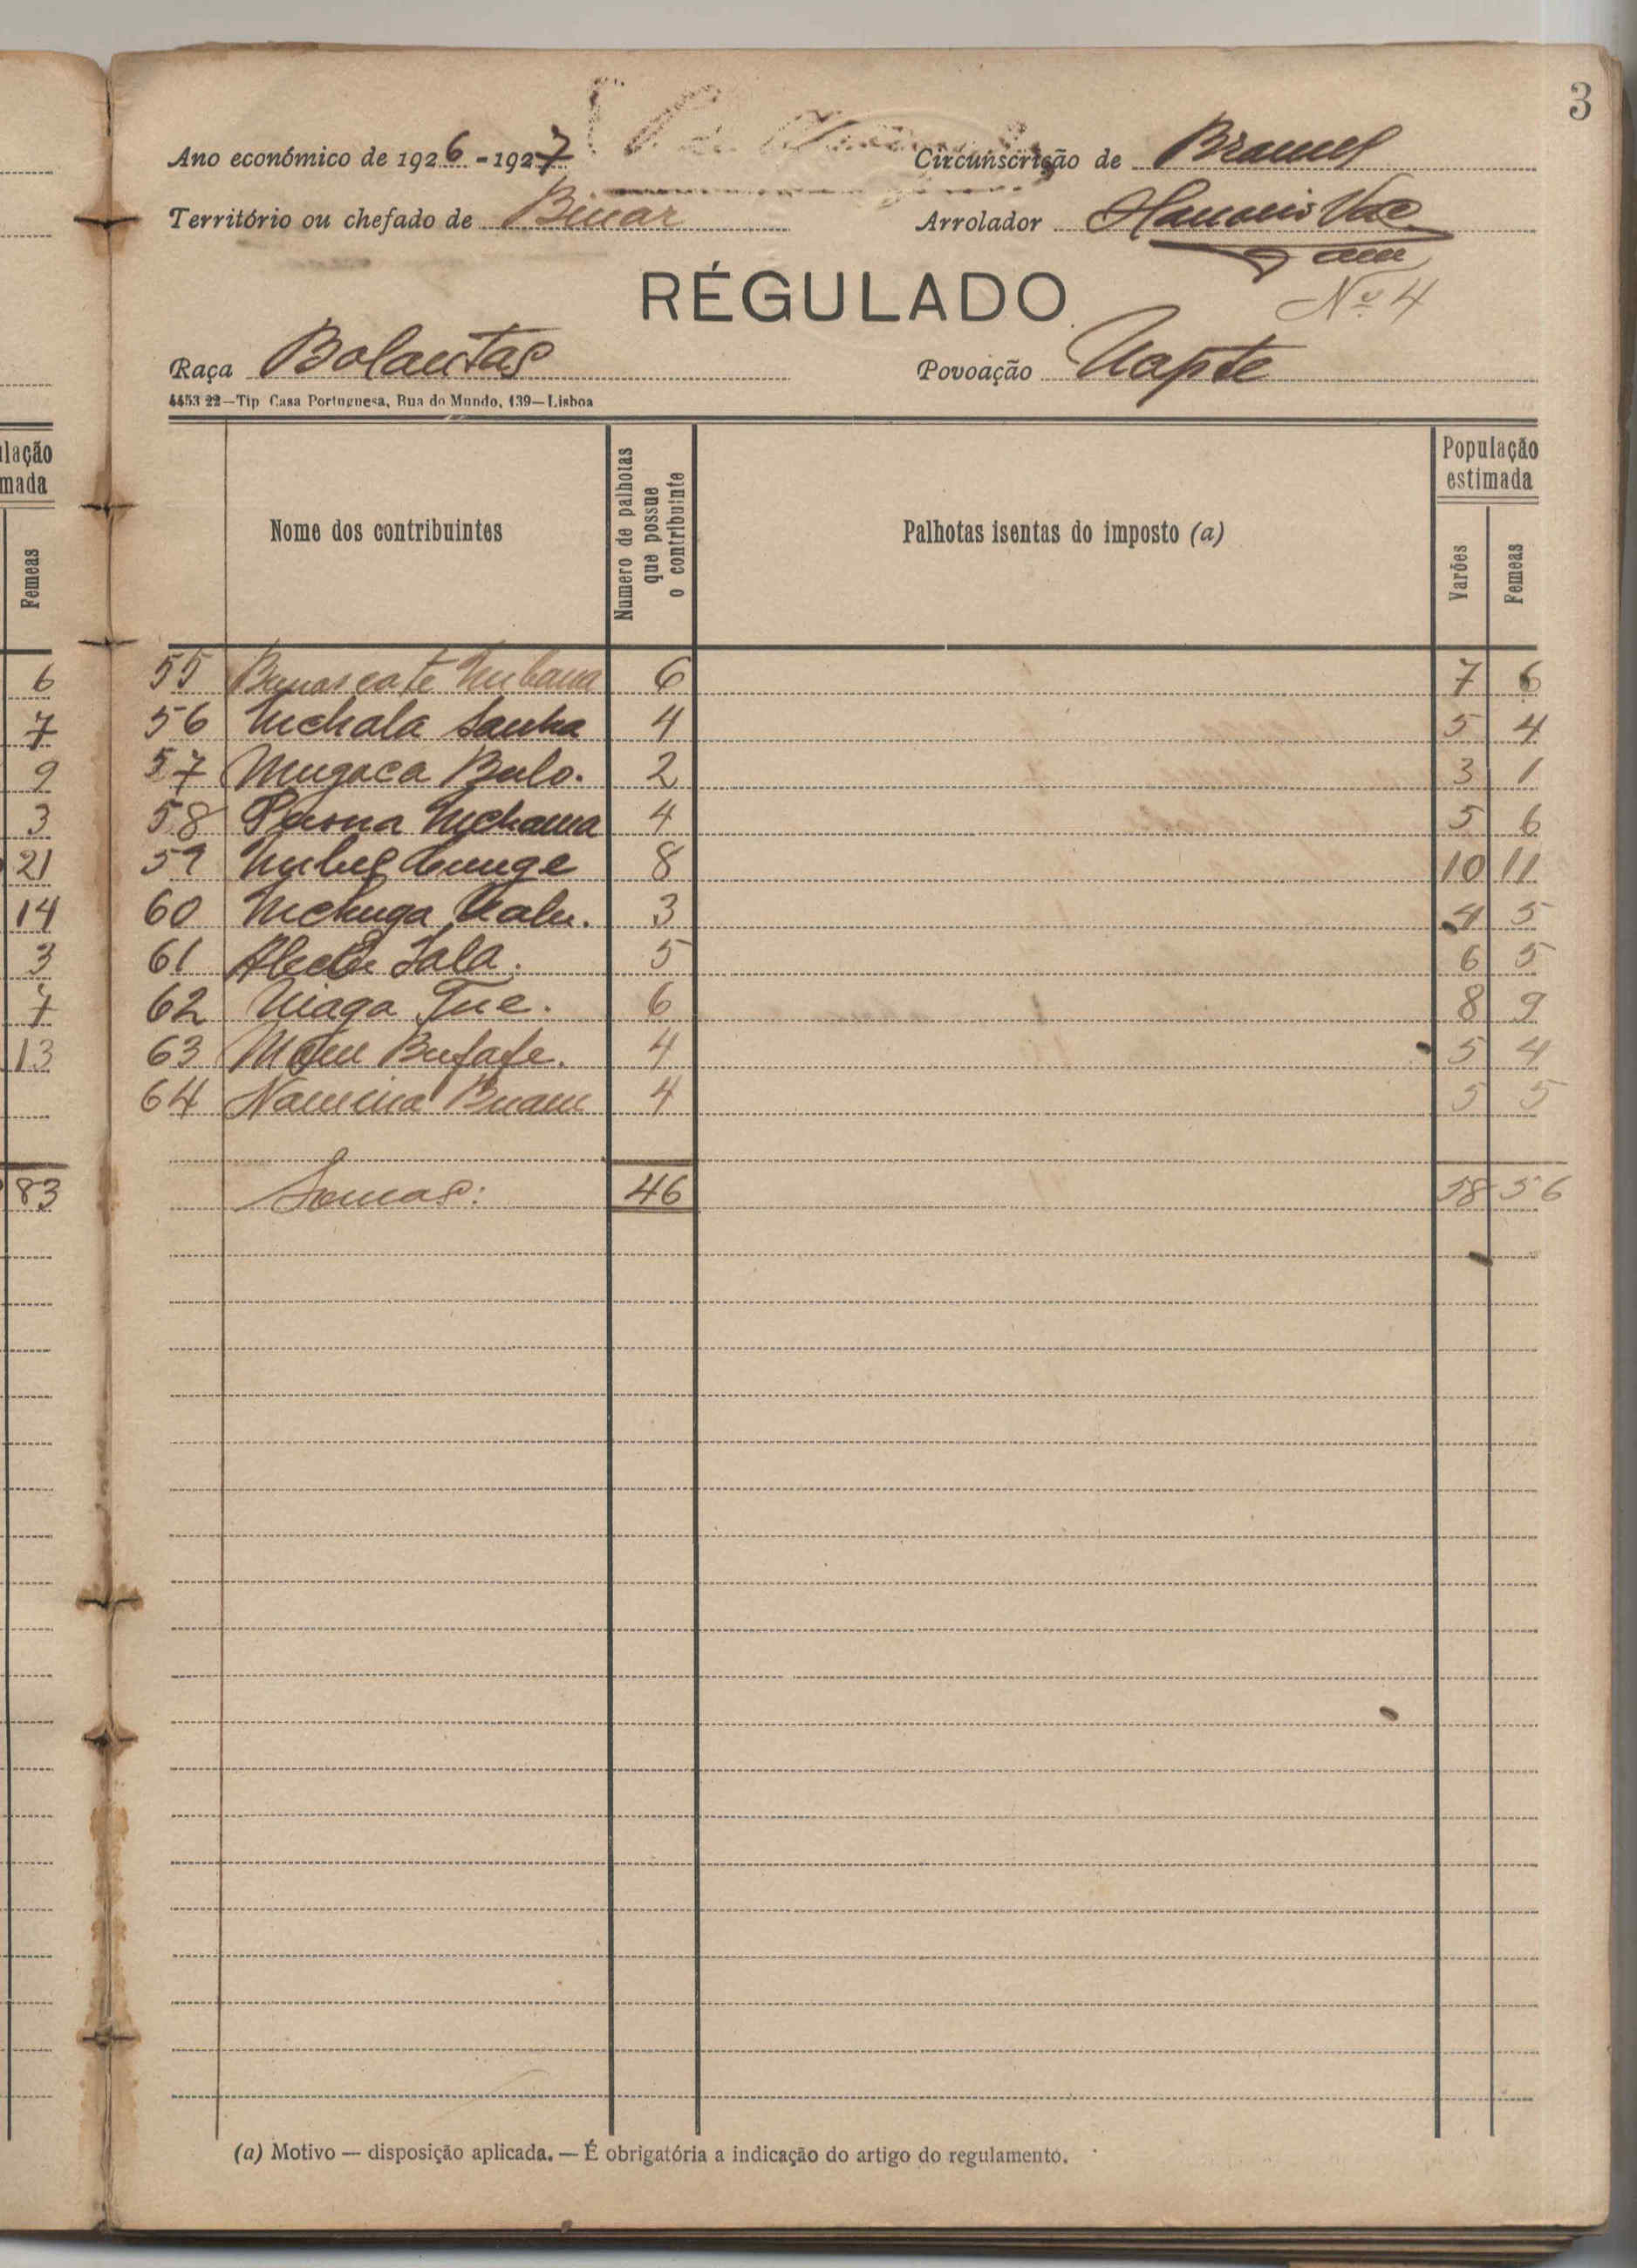 3
Ano económico de 1926-1927 Circunscrição de
Território ou chefado de Binar Arrolador
RÉGULADO
Nº 4
Raça Balantas Povoação Uapte
4453 22—Tip Casa Portuguesa, Rua do Mundo, 139—Lisboa
lação
mada
Femeas
Nome dos contribuintes
Numero de palhotas
que possue
o contribuinte
Palhotas isentas do imposto (a)
População
estimada
Varões
Femeas
6 55 6 7 6
7 56 Inchala Sanha 4 5 4
9 57 Mugaca Bulo. 2 3 1
3 58 Inchama 4 5 6
21 59 8 10 11
14 60 Inchuga 3 4 5
3 61 Sala. 5 6 5
7 62 Niaga Tue. 6 8 9
13 63 Bufafe. 4 5 4
64 Namina 4 5 5
83 Somas: 46 58 56
(a) Motivo — disposição aplicada. — É obrigatória a indicação do artigo do regulamento.